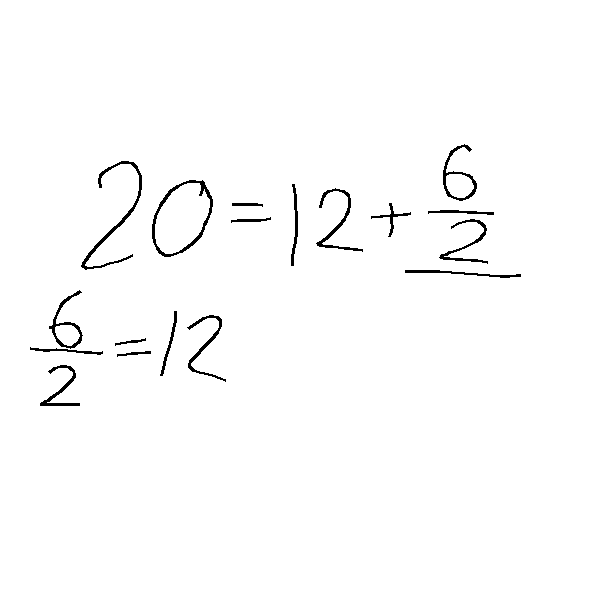 20 = 12 + 6/2
6/2 = 12